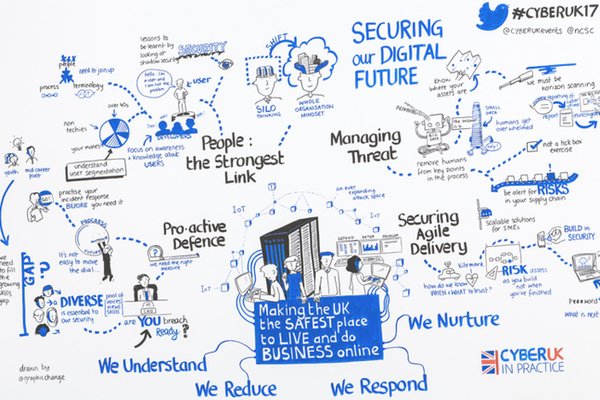 SECURING
our DIGITAL
FUTURE
#CYBERUK17
@CYBERUKevents @ncsc
lessons to
be learnt by
looking at
shadow security
SECURITY
USER
hello. I'm
a user and
I am not the
problem!
SHIFT
SILO
THINKING
WHOLE
ORGANISATION
MINDSET
people
need to join up
process
terminology
over 60s
non
techies
your mates
understand
user segmentation
DEVELOPERS
Focus on awareness
+ knowledge about
USERS
People:
the Strongest
Link
youth
mid career
pivot
Managing
Threat
Know
where your
assets are
we must be
horizon scanning
SMALL
DATA
humans get
over whelmed
remove humans
from key points
in the process
not a tick box
exercise
be alert for
RISKS
in your supply
chain
practise your
incident response
BEFORE you need it
PROGRESS
It's not
easy to move
the dial...
Pro-active
Defence
we need the right
measure
IoT
IoT
an ever
expanding
attack space
Securing
Agile
Delivery
DEFEND DETER DEVELOP
scalable solutions
for SMEs
BUILD in
SECURITY
kitemark
how do we know
WHEN + WHAT to trust?
RISK assess
as you
build not
when you've
finished
GAP
DIVERSE
is essential to
our security
pool of
voices
views
skills
are YOU breach
Ready?
Making the UK
the SAFEST place
to LIVE and do
BUSINESS online
We Understand
We Reduce
We Respond
We Nurture
what is next
drawn by
@graphicchange
CYBERUK
IN PRACTICE